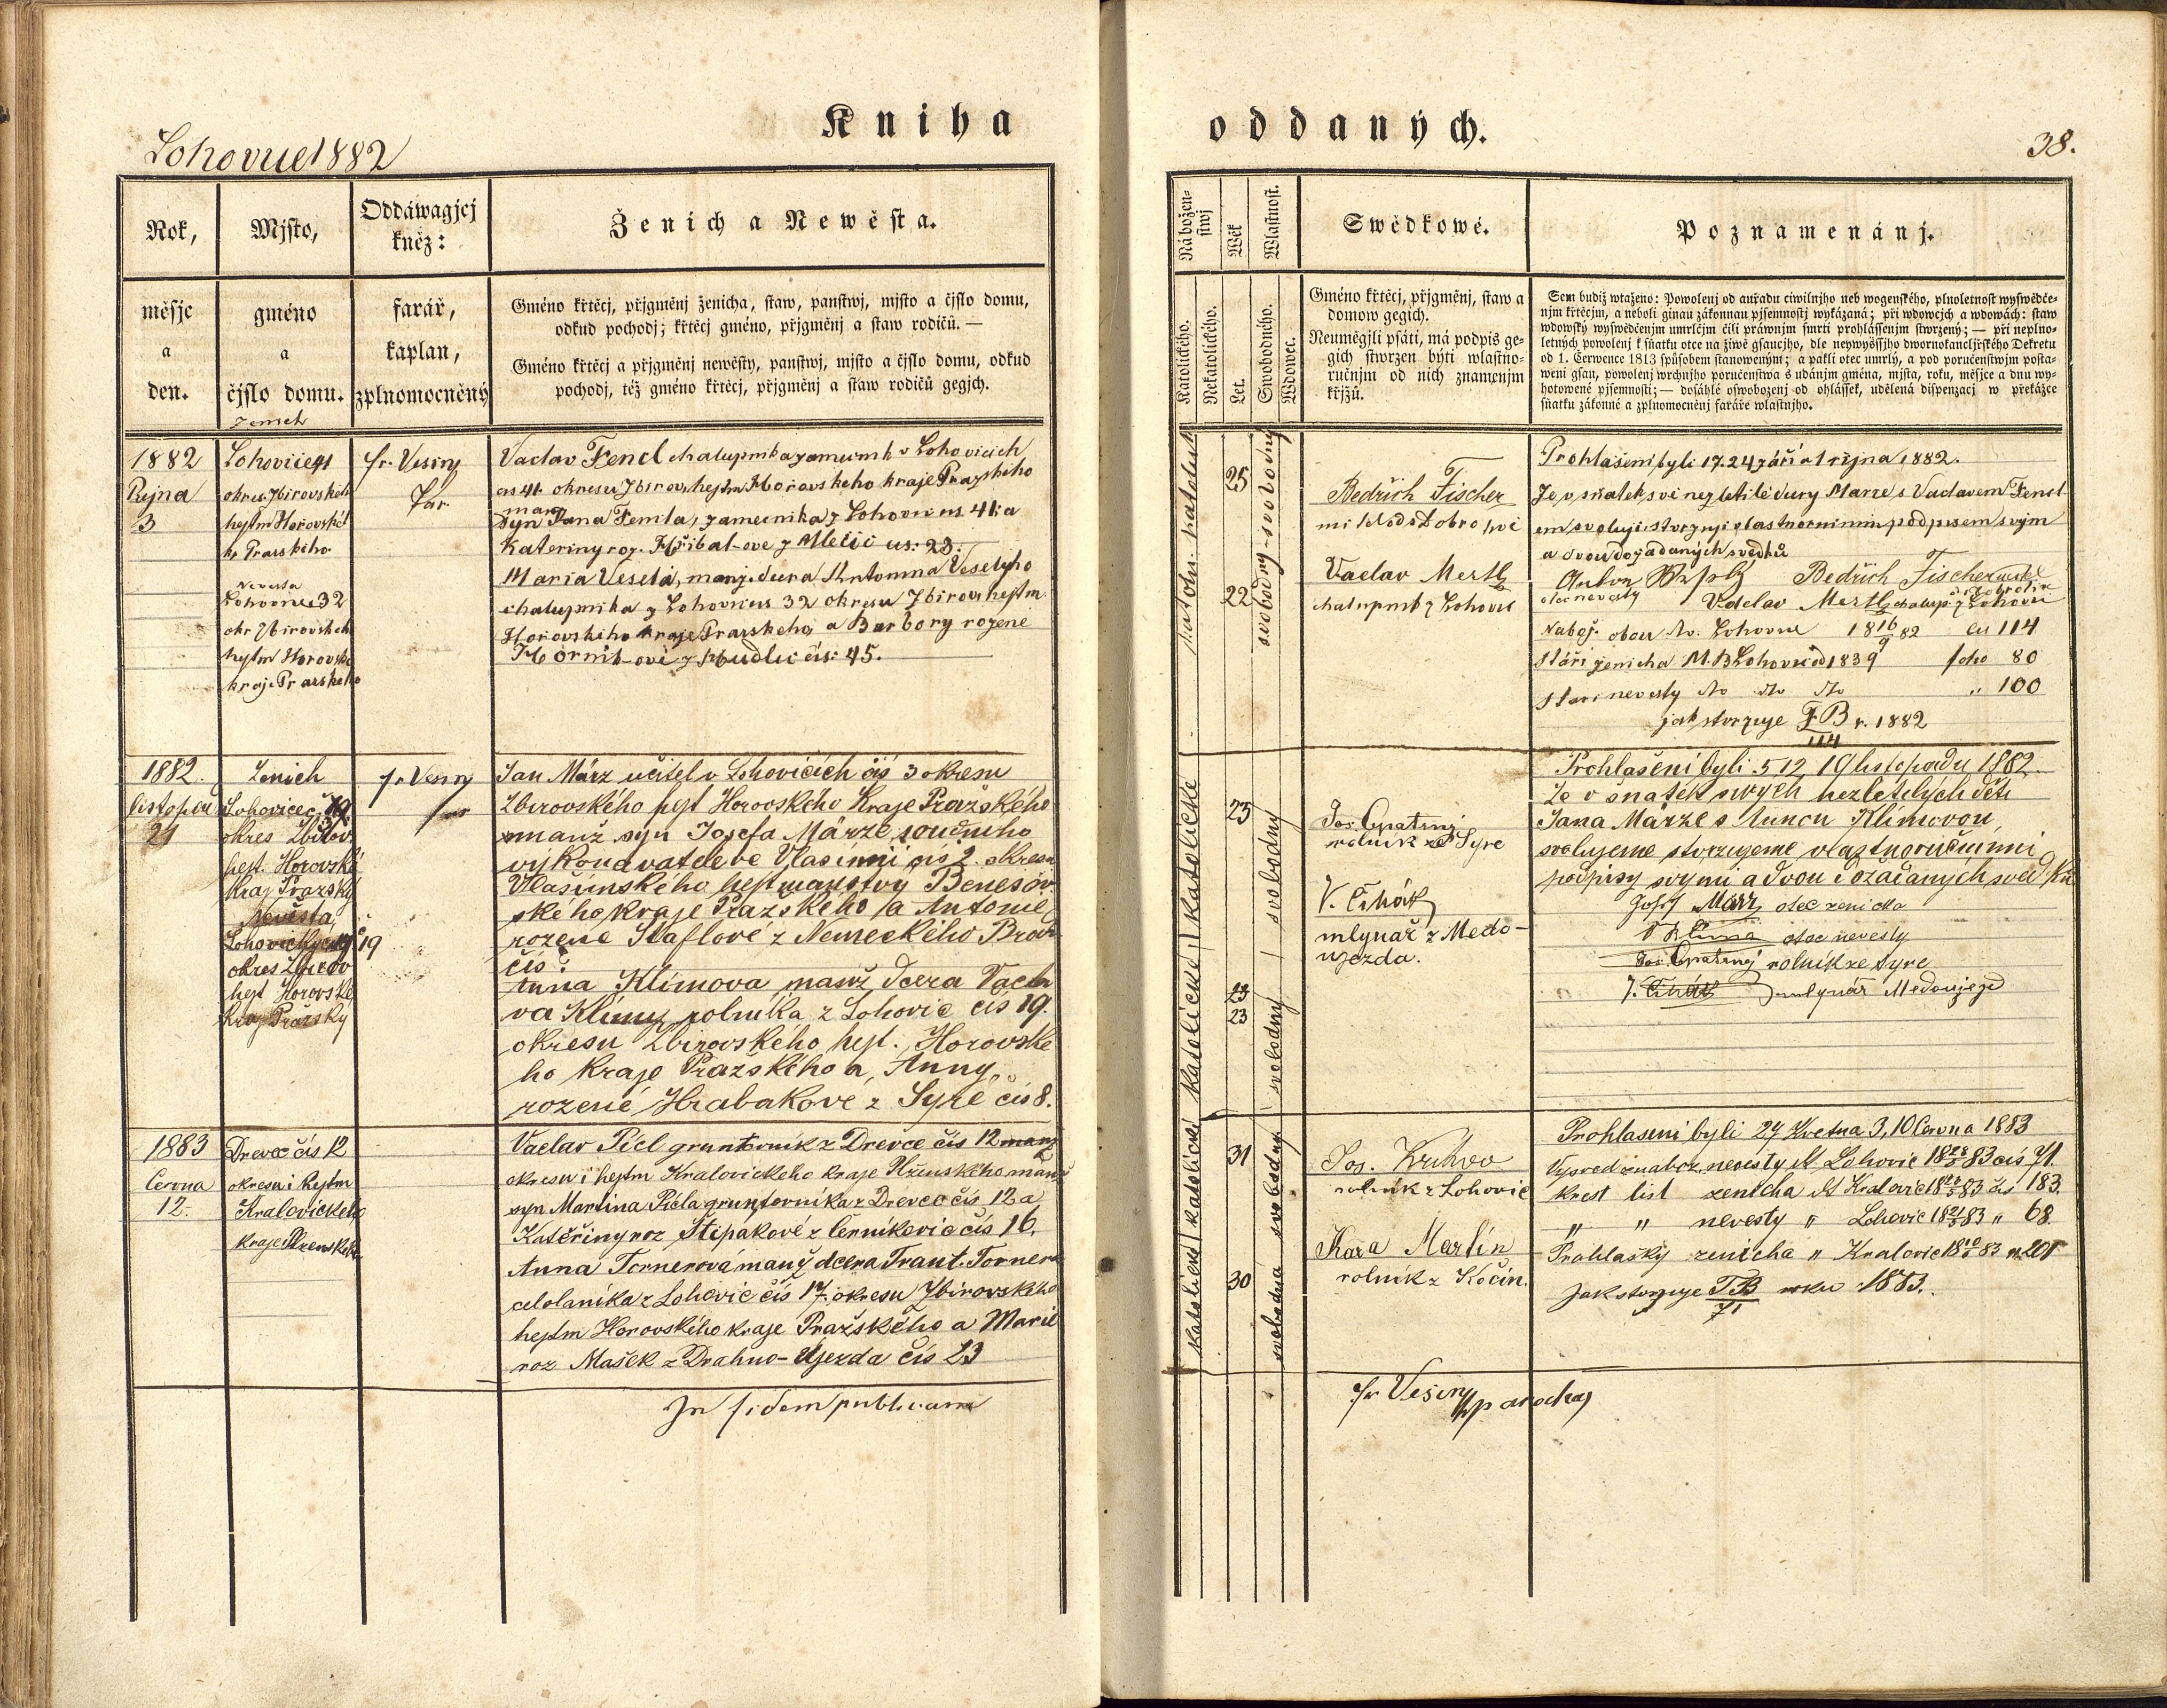 Kniha
Lohovice 1882
Rok,
Mjsto,
Oddáwagjcj
kněz:
Ženich a Newěsta.
měsjc
a
den.
gméno
a
čjslo domu.
farář,
kaplan,
zplnomocněný
Gméno křtěcj, přjgměnj ženicha, staw, panstwj, mjsto a čjslo domu,
odkud pochodj; křtěcj gméno, přjgměnj a staw rodičů. —
Gméno křtěcj a přjgměnj newěsty, panstwj, mjsto a čjslo domu, odkud
pochodj, též gméno křtěcj, přjgměnj a staw rodičů gegjch.
Ženich
1882
Řijna
3
Lohovice 41
okres Zbirovskeh
hejtm Horovské
k. Prazskeho
Nevesta
Lohovice 32
okr Zbirovskeh
hejtm Horovske
kraje Prazskeho
fr. Vesiny
far.
Vaclav Fencl chalupnik a zamecnik v Lohovicich
cis 41. okresu Zbirov. hejtm Horovskeho kraje Prazskeho
manz
syn Jana Fencla, zamecnika z Lohovic cis. 41. a
Kateriny roz. Hřibal-ove z Mlečic cis: 23.
Maria Veselá, manz. dcera Antonina Veselyho
chalupnika z Lohovic cis 32 okresu Zbirov hejtm.
Horovskeho kraje Prazskeho a Barbory rozene
Hornik-ové z Hudlic čís: 45.
1882.
listopadu
21
Zenich
Lohovice č. 19
okres Zbirov
hejt. Horovské
Kraj Prazský
Nevěsta
19
okres Zbirov
hejt Horovske
Kraj Prazsky
fr Vesiny
far
Jan März učitel v Lohovicích čís 3 okresu
Zbirovského hejt Horovského Kraje Pražského
manž syn Josefa Märze soudního
vykonavatele ve Vlasimi čís 2. okresu
Vlašimského hejtmanstvy Benesov
ského kraje Pražského a Antonie
rozené Staflové z Nemeckého Brod
čís:
Anna Klimova manž dcera Václa
va Klimy rolníka z Lohovic čís 19.
okresu Zbirovského hejt. Horovske
ho kraje Pražského a, Anny,
rozené Hrabakove z Syré čís 8.
1883
Cervna
12.
Drevec čís 12
okresu i hejtm
Kralovickeho
kraje Plzenskeho
Vaclav Picl gruntovnik z Drevce čís 12 manz
okresu i hejtm Kralovickeho kraje Plzenskeho manz
syn Martina Picla gruntovníka z Drevce čís 12 a
Katěřiny roz Štipakové z Černikovic čís 16.
Anna Tornerová manž dcera Frant. Tornera
celolanika z Lohovic čís 17. okresu Zbirovskeho
hejtm Horovského kraje Pražského a Marie
roz Mašek z Drahno-Ujezda čís 23
In fidem publicam
oddaných.
38.
Náboženstwj
Wěk
Wlastnost.
Swědkowé.
Poznamenánj.
Katolického.
Nekatolického.
Let.
Swobodného.
Wdowec.
Gméno křtěcj, přjgměnj, staw a
domow gegich.
Neumějgjli psáti, má podpis ge-
gich stwrzen býti wlastno-
ručnjm od nich znamenjm
křjžů.
Sem budiž wtaženo: Powolenj od auřadu ciwilnjho neb wogenského, plnoletnost wyswědče-
njm křtěcjm, a neboli ginau zákonnau pjsemnostj wykázaná; při wdowcjch a wdowách: staw
wdowský wyswědčenjm umrlčjm čili práwnjm smrti prohlássenjm stwrzený; — při neplno-
letných powolenj k sňatku otce na žiwě gsaucjho, dle neywyššjho dwornokancljřského Dekretu
od 1. Čerwence 1813 spůsobem stanoweným; a pakli otec umrlý, a pod poručenstwjm posta-
weni gsau, powolenj wrchnjho poručenstwa s udánjm gména, mjsta, roku, měsjce a dnu wy-
hotowené pjsemnosti; — dosáhlé oswobozenj od ohlášek, udělená dispenzacj w překážce
sňatku zákonné a zplnomocněnj faráře wlastnjho.
25
22
svobodny - svobodny
Bedřich Fischer
Vaclav Mertl
chalupnik z Lohovic
Prohlašeni byli 17. 24 září a 1 rijna 1882.
Že v sňatek své nezletilé dcery Marie s Vaclavem Fencl
em svoluji stvrzuji vlastnorucnim podpisem svým
a dvou dožadaných svědků
Bedřich Fischer
otec nevesty
Vaclav Mertl chalup. z Lohovic
Nabož. obou do. Lohovic 18 16/9 82 čis 114
Stáří ženicha M. B. Lohovic 1839 folio 80
Stari nevesty do do do „ 100
jak stvrzuje F B r. 1882
114
katolicke
23
23
23
svobodný
svobodný
Jos. Opatrný
rolník ze Syre
V. Cihák
mlynař z Medo-
ujezda.
Prohlašeni byli 5, 12, 19 listopadu 1882.
Že v snatek svych nezletilých děti
Jana Märze s Annou Klimovou,
svolujeme stvrzujeme vlastnoručnimi
podpisy svymi a dvou dožadaných svědků
Josef März otec zenicha
V Klima otec nevesty
Jos. Opatrný rolník ze Syre
J. Cihák mlynář Medoujezd
31
30
svobodny
svobodna
Jos.
rolník z Lohovic
Kara Martin
rolník z Kočin.
Prohlaseni byli 27 Kvetna 3, 10 Cervna 1883
Vysved. nevesty Lohovic 83 čis 71.
Krest list zenicha Kralovic 83 čis 183.
„ „ nevesty „ Lohovic 83 „ 68.
Prohlašky zenicha „ Kralovic 83 „ 201
jak stvrzuje FB roku 1883.
71
fr Vesiny parochus